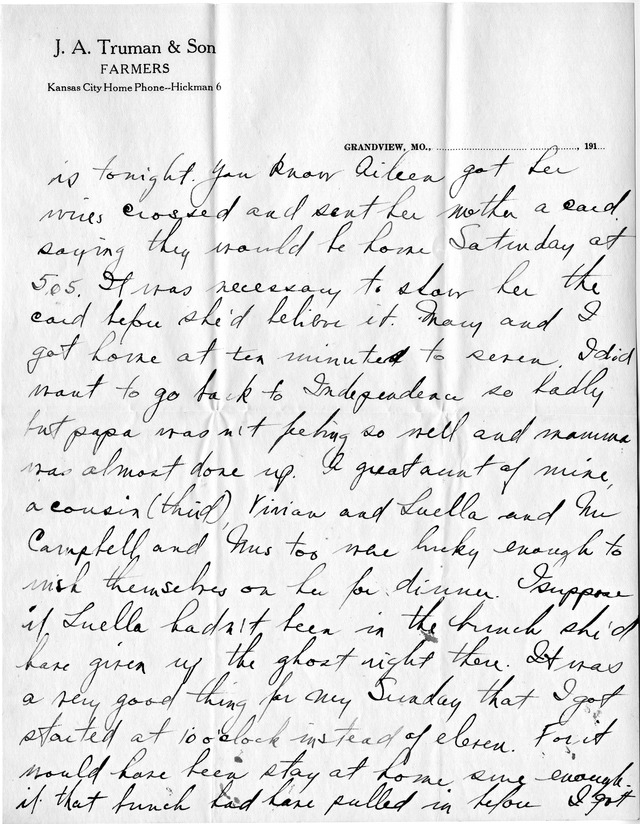 J. A. Truman & Son
FARMERS
Kansas City Home Phone--Hickman 6
GRANDVIEW, MO., ........................................, 191...
is tonight. You know Aileen got her
wires crossed and sent her mother a card
saying they would be home Saturday at
505. It was necessary to show her the
card before she'd believe it. Mary and I
got home at ten minutes to seven. I did
want to go back to Independence so badly
but papa wasn't feeling so well and mamma
was almost done up. A great aunt of mine,
a cousin (third), Vivian and Luella and Mr
Campbell and Mrs too were lucky enough to
wish themselves on her for dinner. I suppose
if Luella hadn't been in the bunch she'd
have given up the ghost right there. It was
a very good thing for my Sunday that I got
started at 10 o'clock instead of eleven. For it
would have been stay at home sure enough
if that bunch had have pulled in before I got